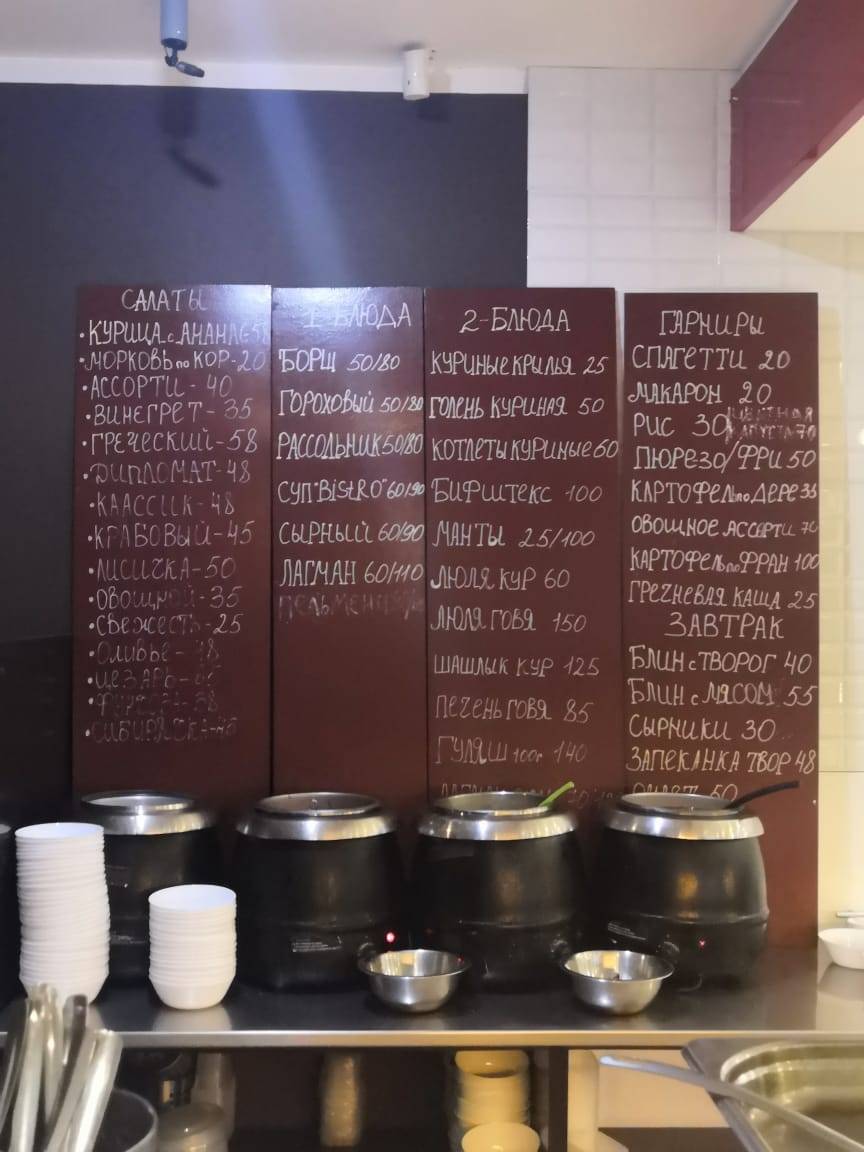 САЛАТЫ
•КУРИЦА с АНАНАС
•МОРКОВЬ по КОР-20
•АССОРТИ-40
•ВИНЕГРЕТ-35
•ГРЕЧЕСКИЙ-58
•ДИПЛОМАТ-48
•КЛАССИК-48
•КРАБОВЫЙ-45
•ЛИСИЧКА-50
•ОВОЩНОЙ-35
•СВЕЖЕСТЬ-25
•ОЛИВЬЕ-
•ЦЕЗАРЬ-
•СИБИРЯЧКА-
1-БЛЮДА
БОРЩ 50/80
ГОРОХОВЫЙ 50/80
РАССОЛЬНИК 50/80
СУП "BiStRO" 60/90
СЫРНЫЙ 60/90
ЛАГМАН 60/110
ПЕЛЬМЕНИ
2-БЛЮДА
КУРИНЫЕ КРЫЛЬЯ 25
ГОЛЕНЬ КУРИНАЯ 50
КОТЛЕТЫ КУРИНЫЕ 60
БИФШТЕКС 100
МАНТЫ 25/100
ЛЮЛЯ КУР 60
ЛЮЛЯ ГОВЯ 150
ШАШЛЫК КУР 125
ПЕЧЕНЬ ГОВЯ 85
ГУЛЯШ 100г 140
ГАРНИРЫ
СПАГЕТТИ 20
МАКАРОН 20
РИС 30
ПЮРЕ 30/ФРИ 50
КАРТОФЕЛЬ по ДЕРЕ 35
ОВОЩНОЕ АССОРТИ
КАРТОФЕЛЬ по ФРАН 100
ГРЕЧНЕВАЯ КАША 25
ЗАВТРАК
БЛИН с ТВОРОГ 40
БЛИН с МЯСОМ 55
СЫРНИКИ 30
ЗАПЕКАНКА ТВОР 48